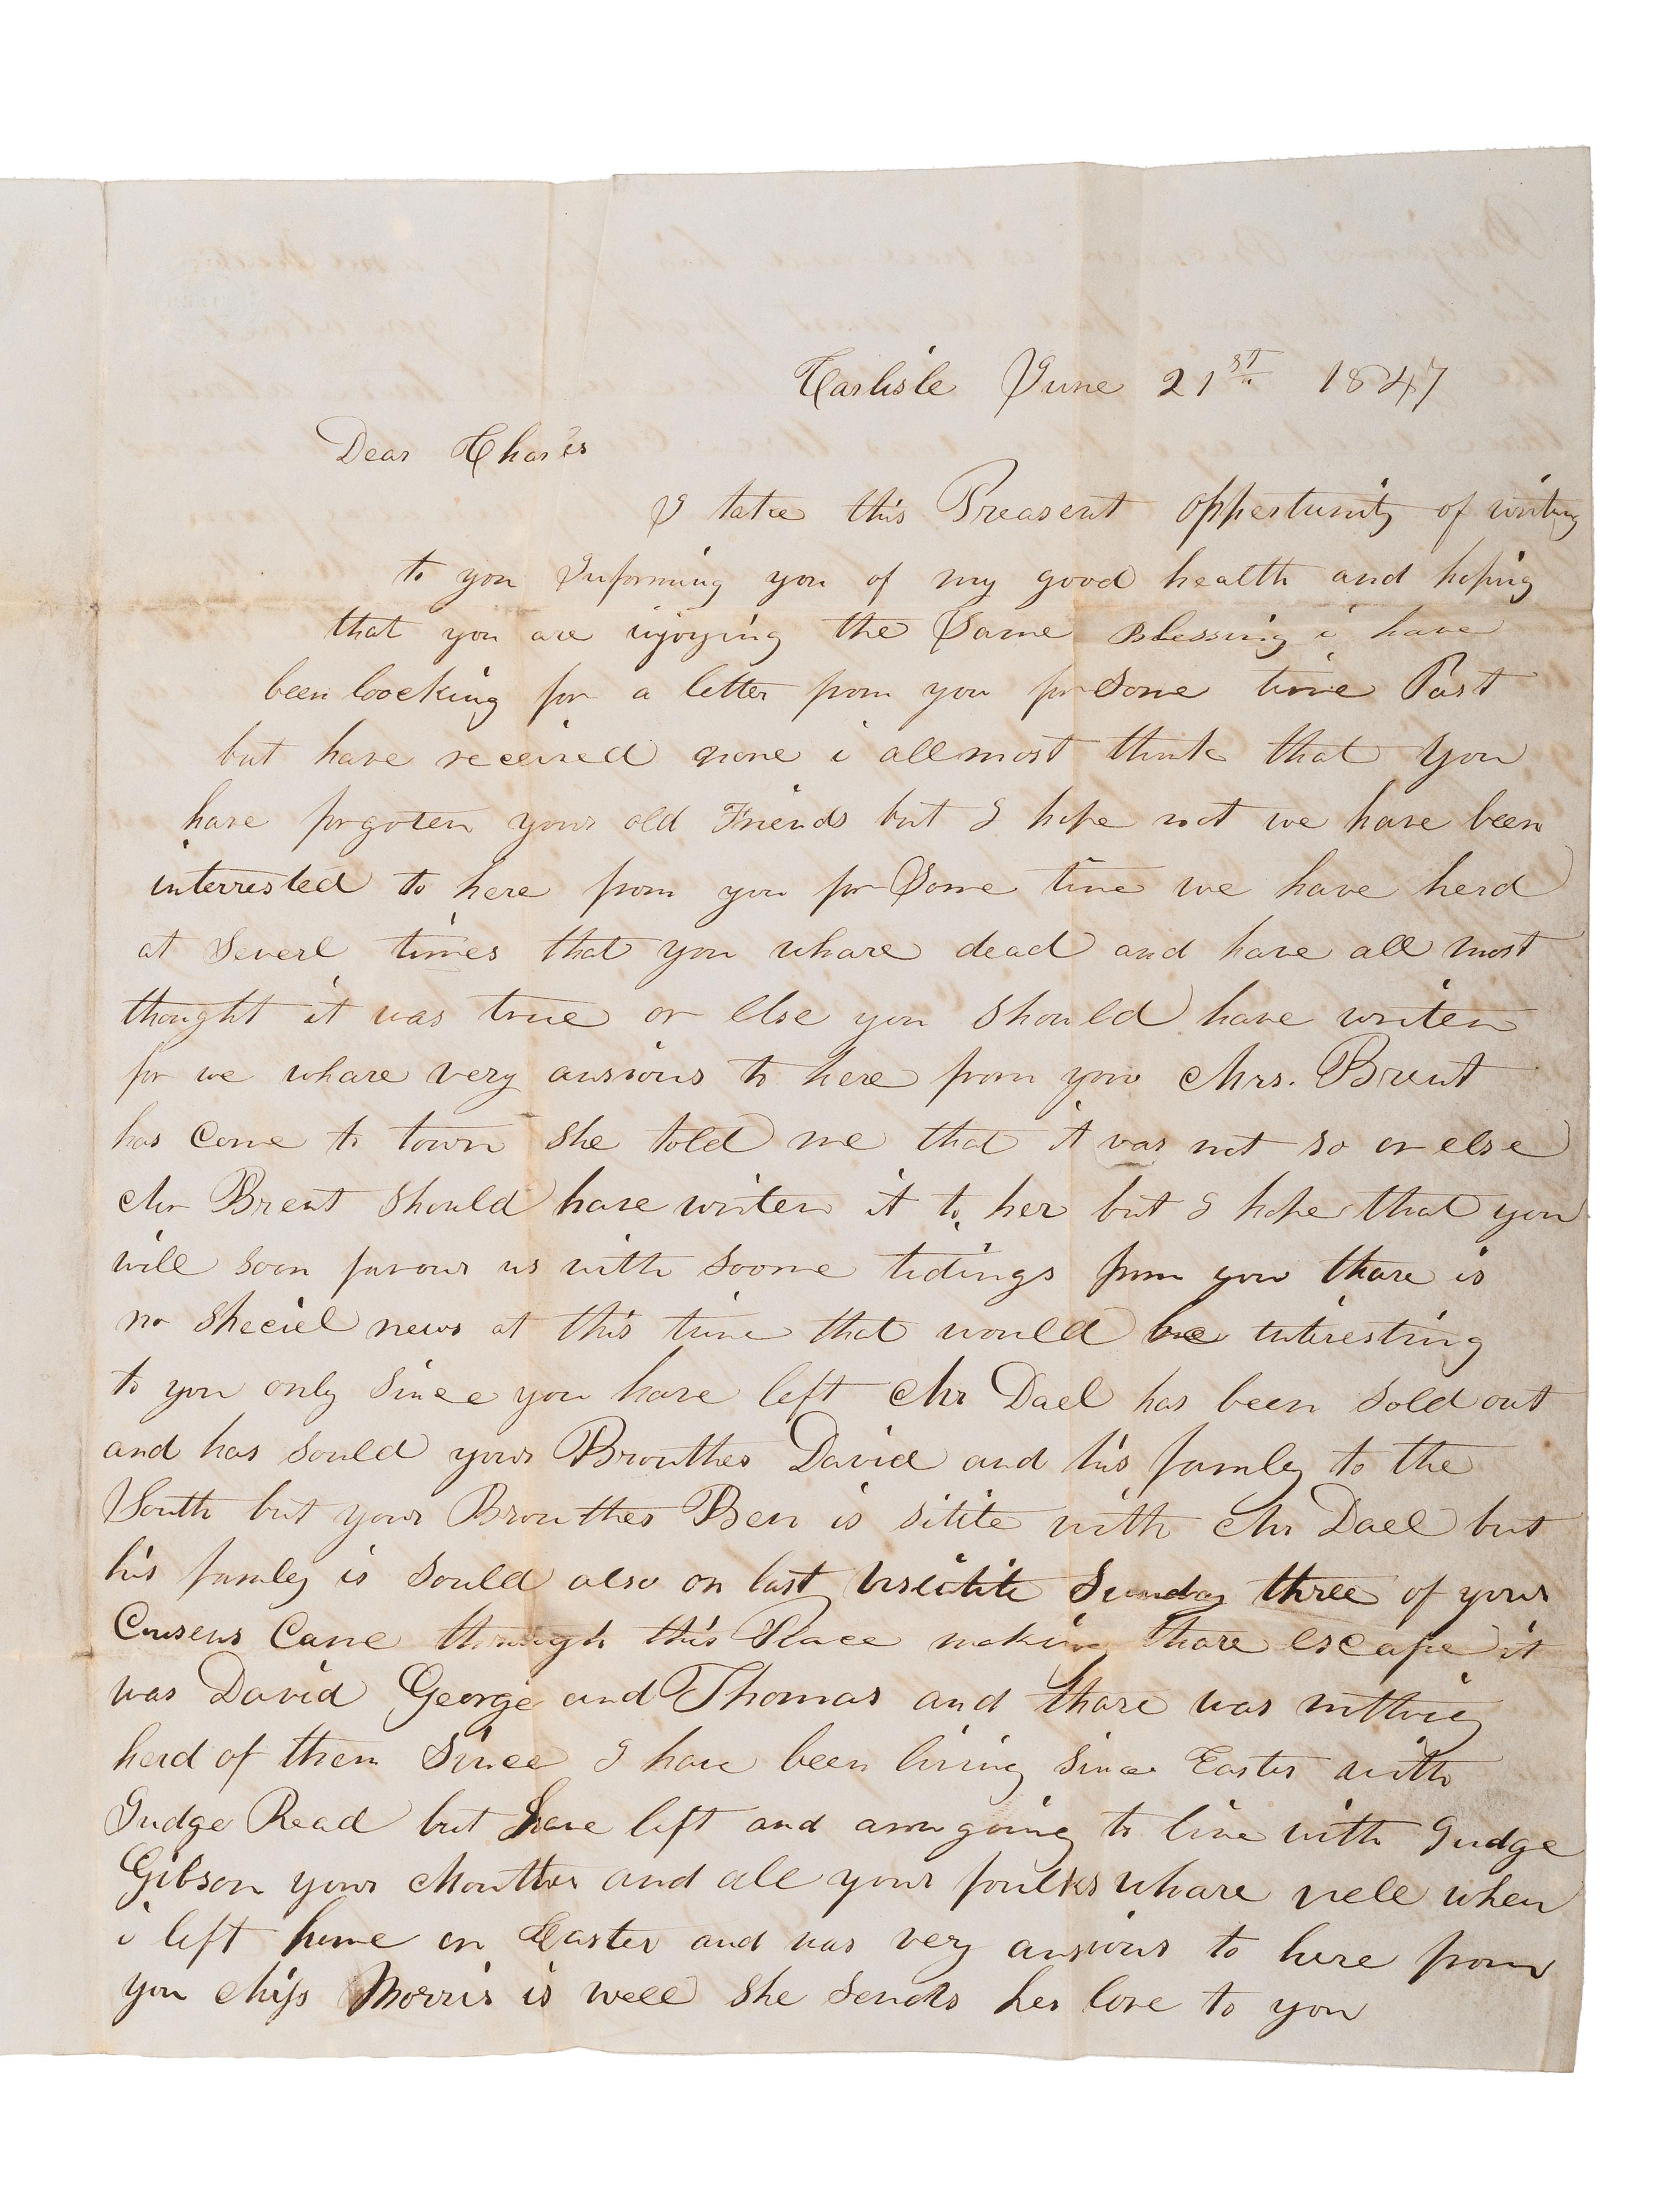 Carlisle June 21st 1847
Dear Charles
I take this Preasent oppertunity of writing
to you Informing you of my good health and hoping
that you are injoying the Same Blessing i have
been loocking for a letter from you for Some time Past
but have received none i allmost think that you
have forgoten your old Friends but I hope not we have been
interrested to here from you for Some time we have herd
at Severl times that you whare dead and have all most
thought it was true or else you should have writen
for we whare very ansious to here from you Mrs. Brent
has Come to town she told me that it was not so or else
Mr Brent should have writen it to her but I hope that you
will soon favour us with soome tidings from you thare is
no speciel news at this time that would be interesting
to you only since you have left Mr Dael has been sold out
and has sould your Brouther David and his famley to the
South but your Brouther Ben is still with Mr Dael but
his famley is sould also on last Sunday three of your
Cousens Came through this Place making thare escape it
was David George and Thomas and thare was nothing
herd of them Since I have been living since Easter with
Judge Read but have left and am going to live with Judge
Gibson your Mouther and all your foulks whare well when
i left home on Easter and was very ansious to here from
you Miss Morris is well She sends her love to you